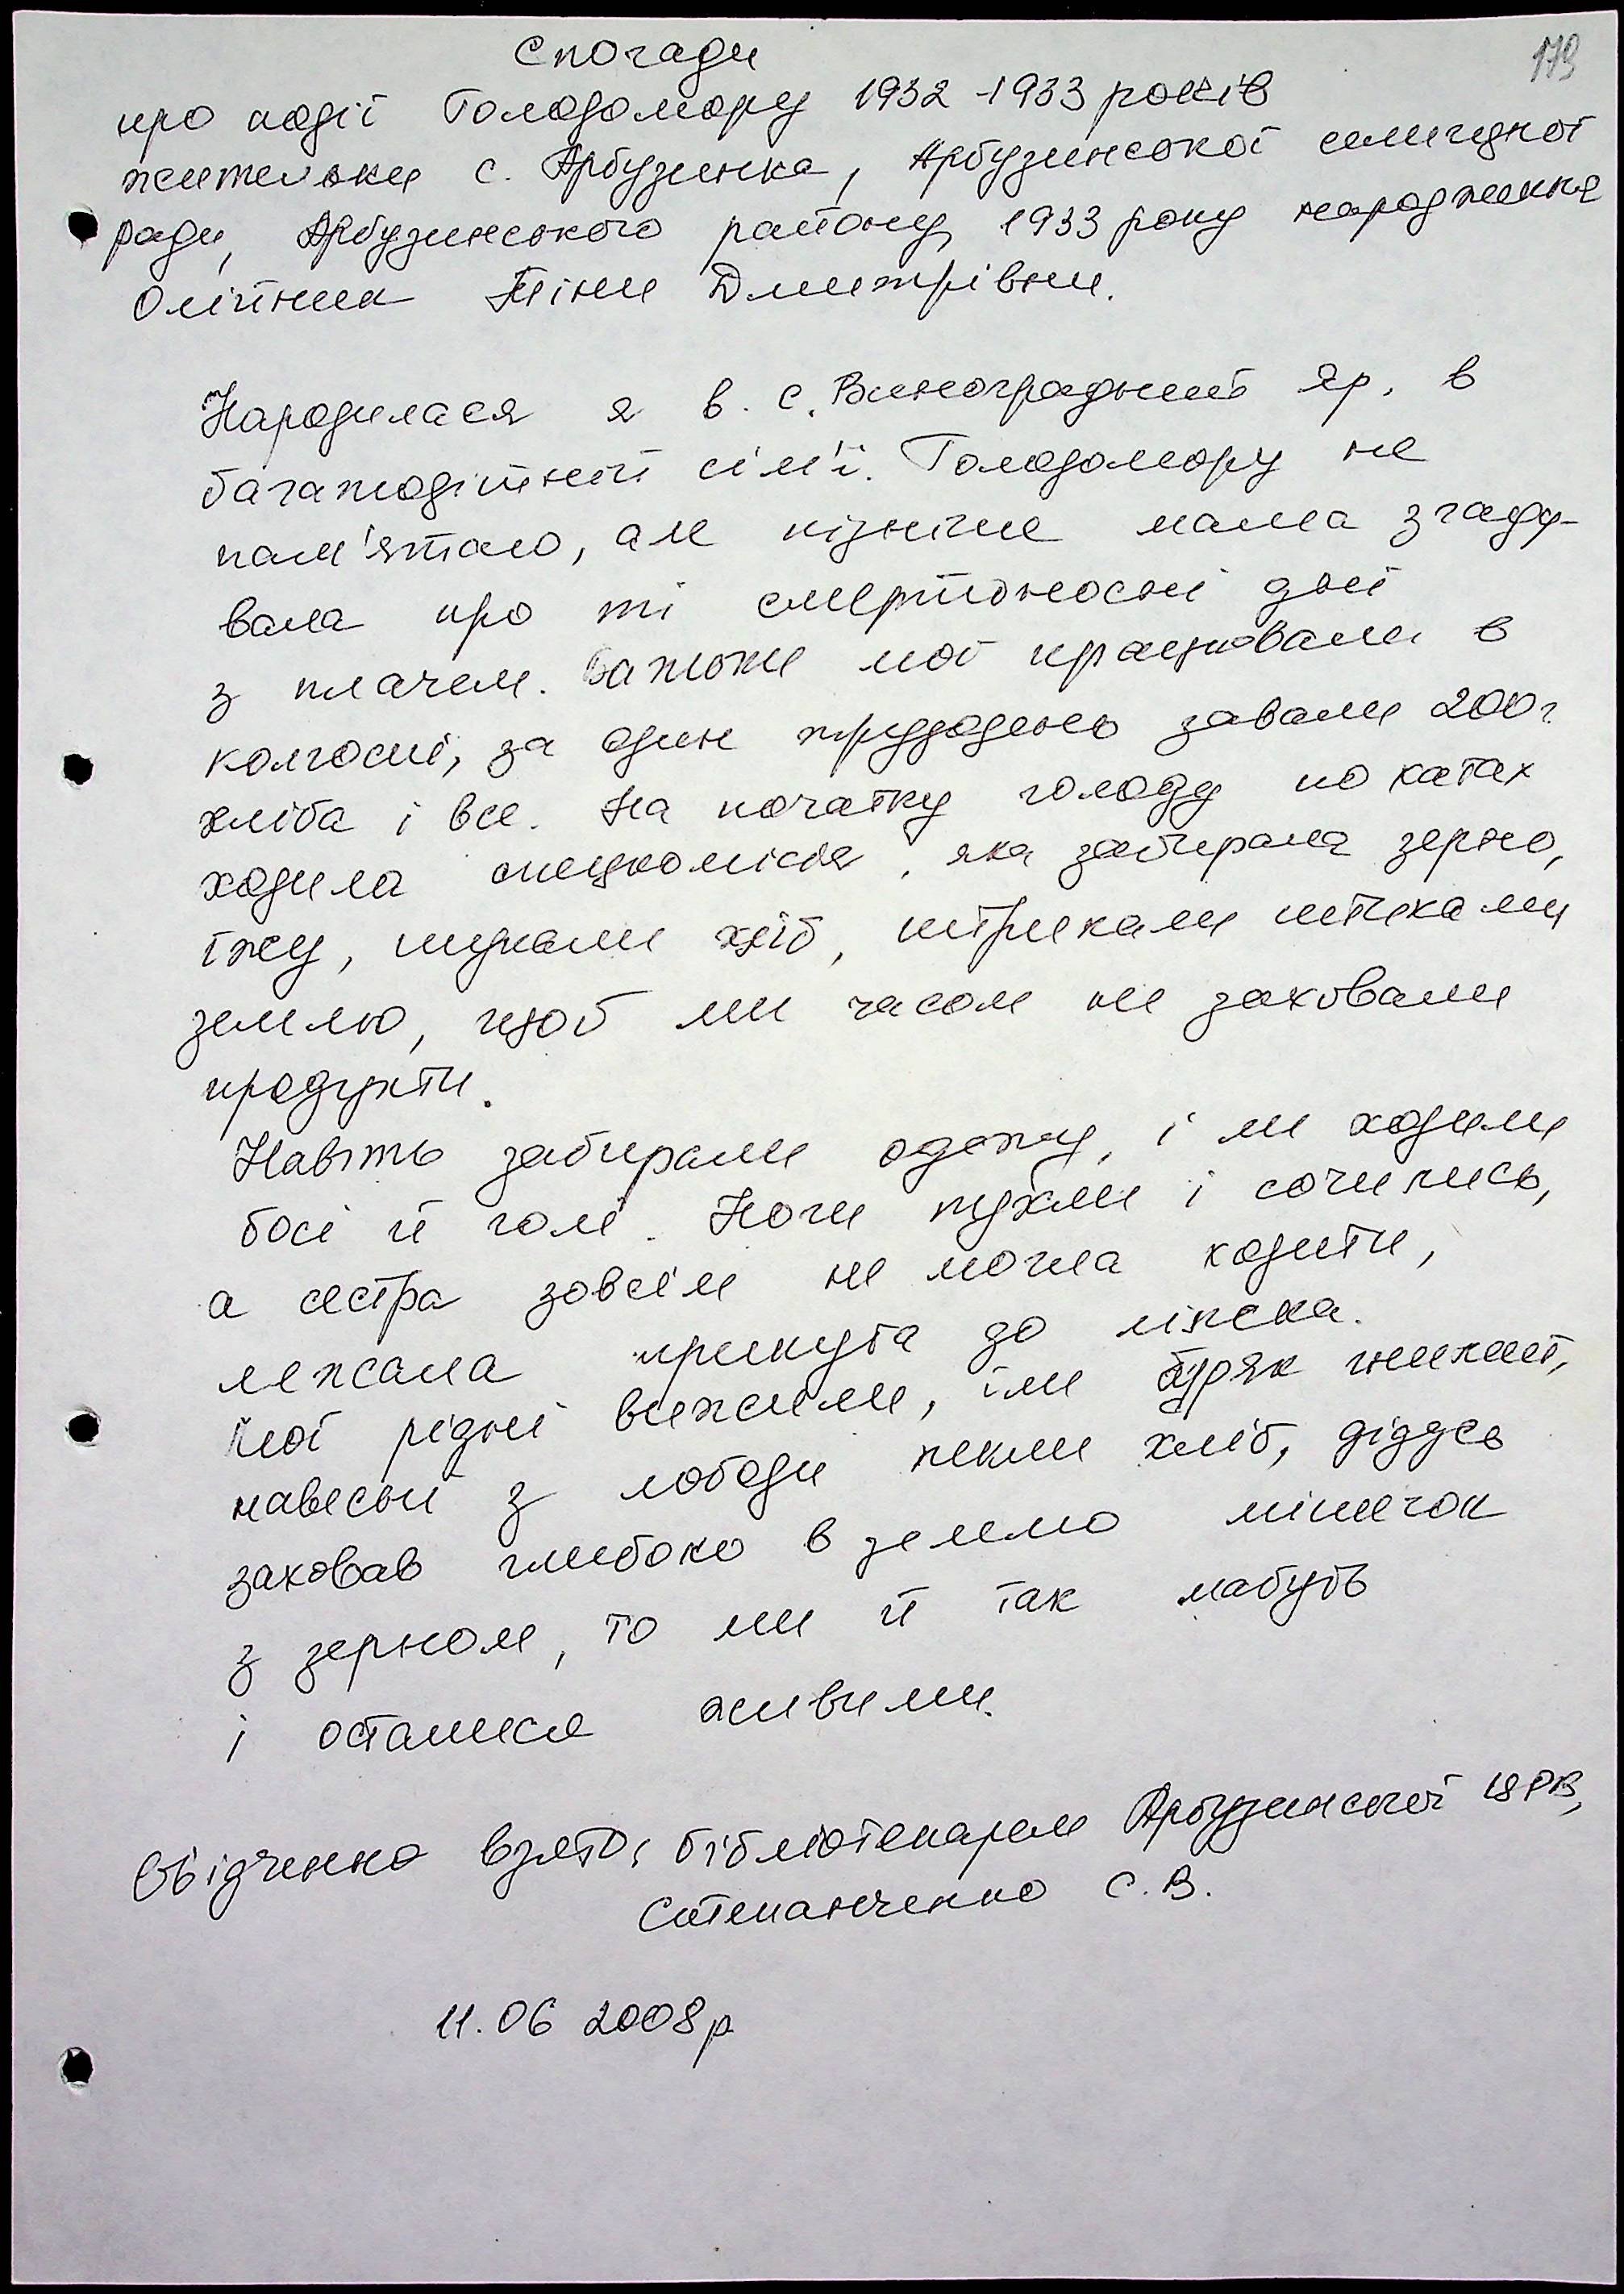 179
Спогади
про події Голодомору 1932-1933 років
жительки с. Арбузинка, Арбузинської селищної
ради, Арбузинського району, 1933 року народження
Олійник Ніни Дмитрівни.
Народилася я в. с. Виноградний Яр. в
багатодітній сім'ї. Голодомору не
пам'ятаю, але пізніше мама згаду-
вала про ті смертоносні дні
з плачем. Батьки мої працювали в
колгоспі, за один трудодень давали 200 г
хліба і все. На початку голоду по хатах
ходила спецкомісія, яка забирала зерно,
їжу, шукали хліб, штрикали штиками
землю, щоб ми часом не заховали
продукти.
Навіть забирали одежу, і ми ходили
босі й голі. Ноги пухли і сочились,
а сестра зовсім не могла ходити,
лежала прикута до ліжка.
Мої рідні вижили, їли буряк гнилий,
навесні з лободи пекли хліб, дідусь
заховав глибоко в землю мішечок
з зерном, то ми й так мабуть
і осталися живими.
Свідчення взято: бібліотекарем Арбузинської ЦРБ,
Степанченко С. В.
11.06 2008р